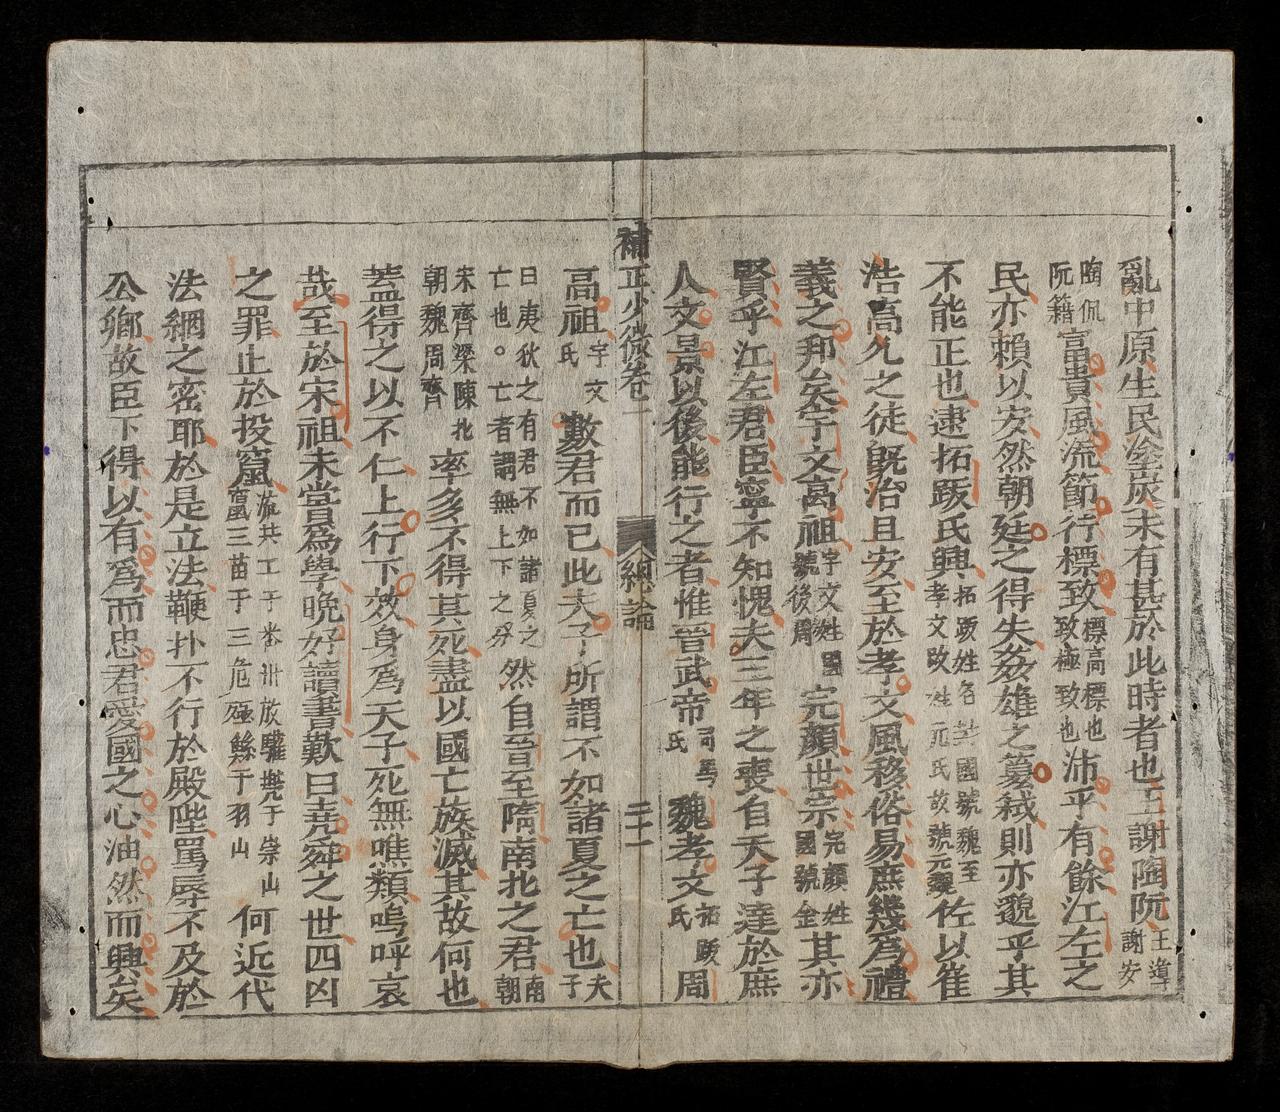 亂中原生民塗炭未有甚於此時者也王謝陶阮王導謝安
陶侃阮籍富貴風流節行標致標高標也致極致也沛乎有餘江左之
民亦賴以安然朝廷之得失姦雄之簒弑則亦邈乎其
不能正也逮拓跋氏興拓跋姓名珪國號魏至孝文改姓元氏故號元魏佐以崔
浩高允之徒既治且安至於孝文風移俗易庶幾為禮
義之邦矣宇文高祖宇文姓國號後周完顏世宗完顏姓國號金其亦
賢乎江左君臣寧不知愧夫三年之喪自天子達於庶
人文景以後能行之者惟晉武帝司馬氏魏孝文拓跋氏周
補正少微卷一 總論 二十一
高祖宇文氏數君而已此夫子所謂不如諸夏之亡也夫子
曰夷狄之有君不如諸夏之亡也。亡者謂無上下之分然自晉至隋南北之君南朝
宋齊梁陳北朝魏周齊率多不得其死盡以國亡族滅其故何也
蓋得之以不仁上行下效身為天子死無噍類嗚呼哀
哉至於宋祖未嘗為學晩好讀書歎曰堯舜之世四凶
之罪止於投竄流共工于幽州放驩兜于崇山竄三苗于三危殛鯀于羽山何近代
法綱之密耶於是立法鞭扑不行於殿陛罵辱不及於
公卿故臣下得以有為而忠君愛國之心油然而興矣